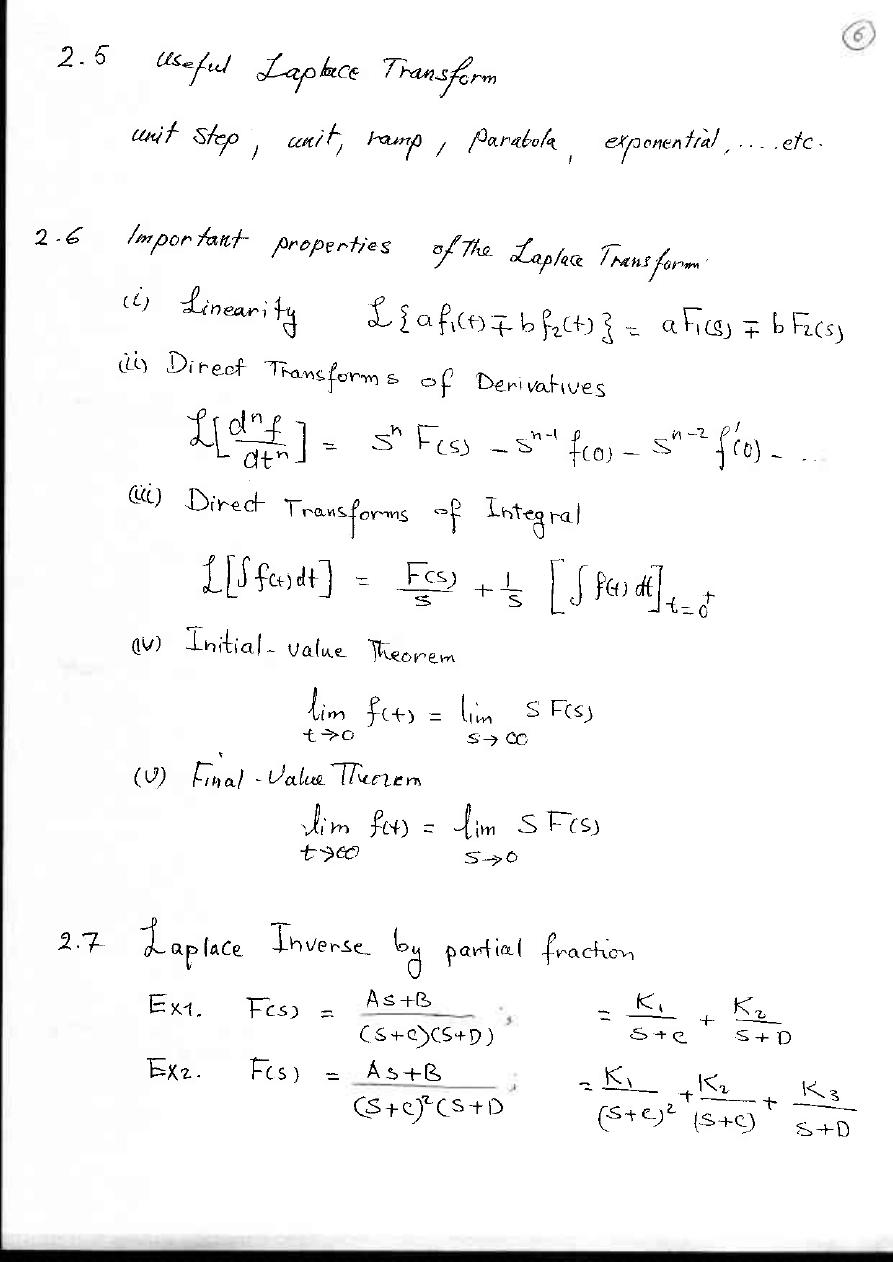 6
2.5 Useful Laplace Transform
unit step, unit, ramp, Parabola, exponential, ....etc.
2.6 Important properties of The Laplace Transform
(i) Linearity ℒ{af₁(t) ∓ bf₂(t)} = aF₁(s) ∓ bF₂(s)
(ii) Direct Transforms of Derivatives
ℒ[dⁿf/dtⁿ] = sⁿ F(s) - sⁿ⁻¹ f(0) - sⁿ⁻² f'(0) - ...
(iii) Direct Transforms of Integral
ℒ[∫f(t)dt] = F(s)/s + 1/s [∫f(t)dt]t=0⁺
(iv) Initial-value Theorem
lim t→0 f(t) = lim s→∞ S F(s)
(v) Final-Value Theorem
lim t→∞ f(t) = lim s→0 S F(s)
2.7 Laplace Inverse by partial fraction
Ex1. F(s) = As+B/(s+c)(s+D) ; = K₁/s+c + K₂/s+D
Ex2. F(s) = As+B/(s+c)²(s+D ; = K₁/(s+c)² + K₂/(s+c) + K₃/s+D